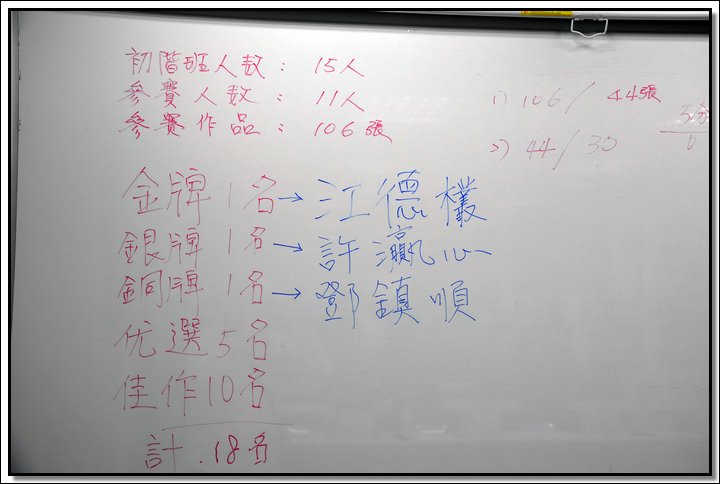 初階班人数: 15人
參賽人数: 11人
參賽作品: 106張
1) 106/44張
2) 44/30
金牌1名→江德檥
銀牌1名→許瀛心
銅牌1名→鄧鎮順
优選5名
佳作10名
計.18名